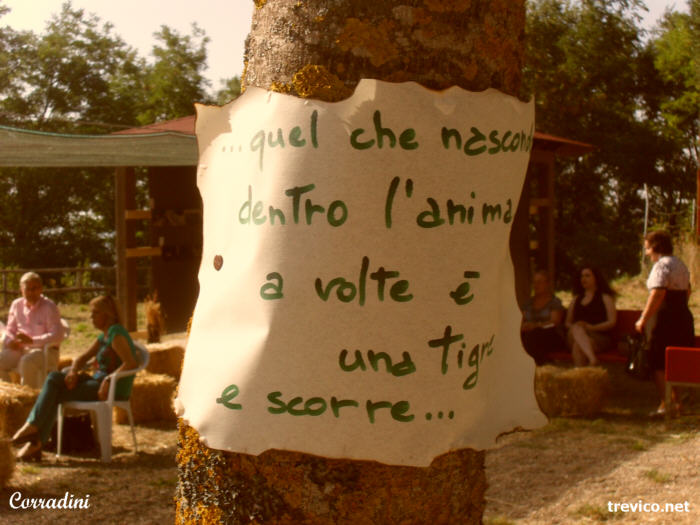 ...quel che nascond
dentro l'anima
a volte è
una tigre
e scorre...
Corradini
trevico.net